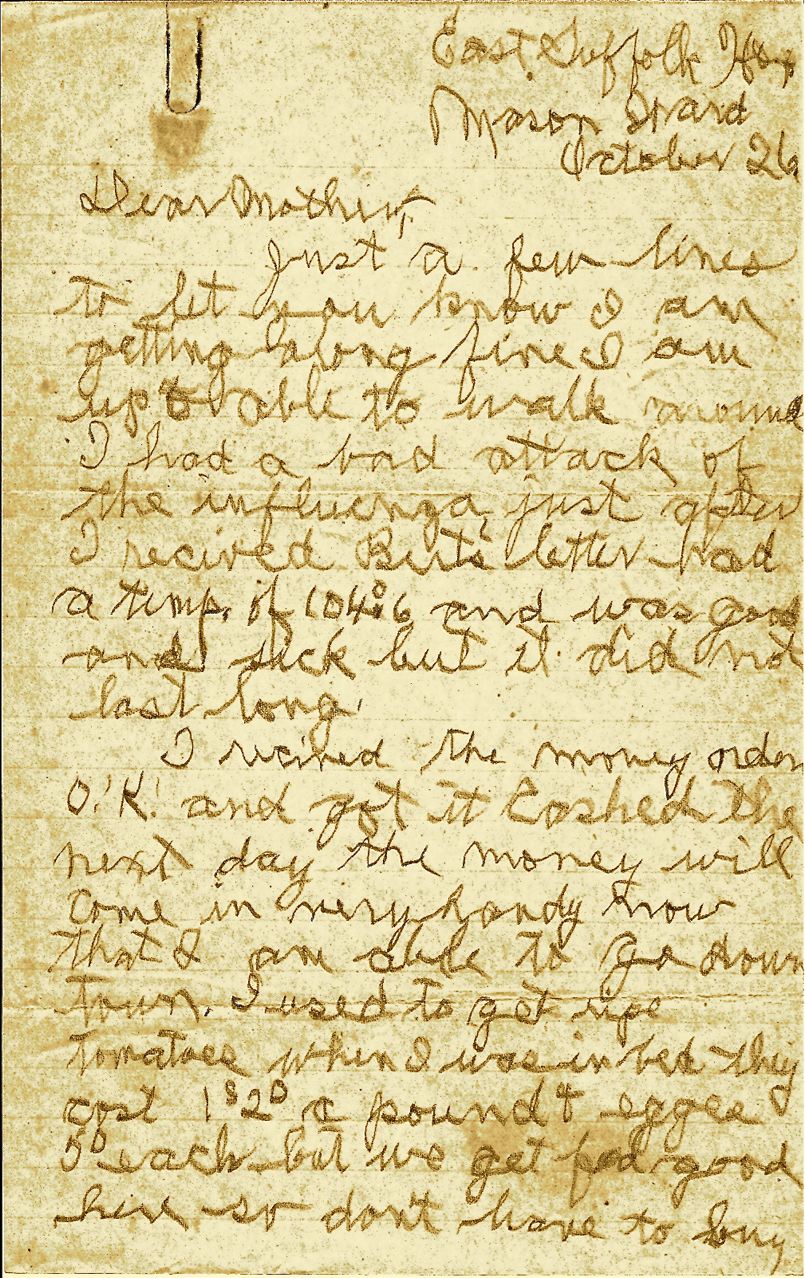 East Suffolk Hosp
Mason Ward
October 26
Dear Mother,
Just a few lines
to let you know I am
getting along fine I am
up & able to walk around
I had a bad attack of
the influenza just after
I recived Bert's letter had
a temp. of 104°6 and was good
and sick but it did not
last long.
I recived the money order
O.K. and got it Cashed the
next day the money will
come in very handy now
that I am able to go down
town. I used to get ripe
tomatoes when I was in bed they
cost 1s 2D a pound & eggs
5D each but we get fed good
here so don't have to buy